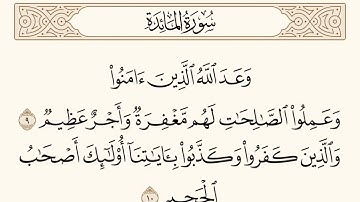 سُورَةُ المَائِدَةِ
وَعَدَ ٱللَّهُ ٱلَّذِينَ ءَامَنُوا۟
وَعَمِلُوا۟ ٱلصَّـٰلِحَـٰتِ لَهُم مَّغْفِرَةٌ وَأَجْرٌ عَظِيمٌ ٩
وَٱلَّذِينَ كَفَرُوا۟ وَكَذَّبُوا۟ بِـَٔايَـٰتِنَآ أُو۟لَـٰٓئِكَ أَصْحَـٰبُ
ٱلْجَحِيمِ ١٠